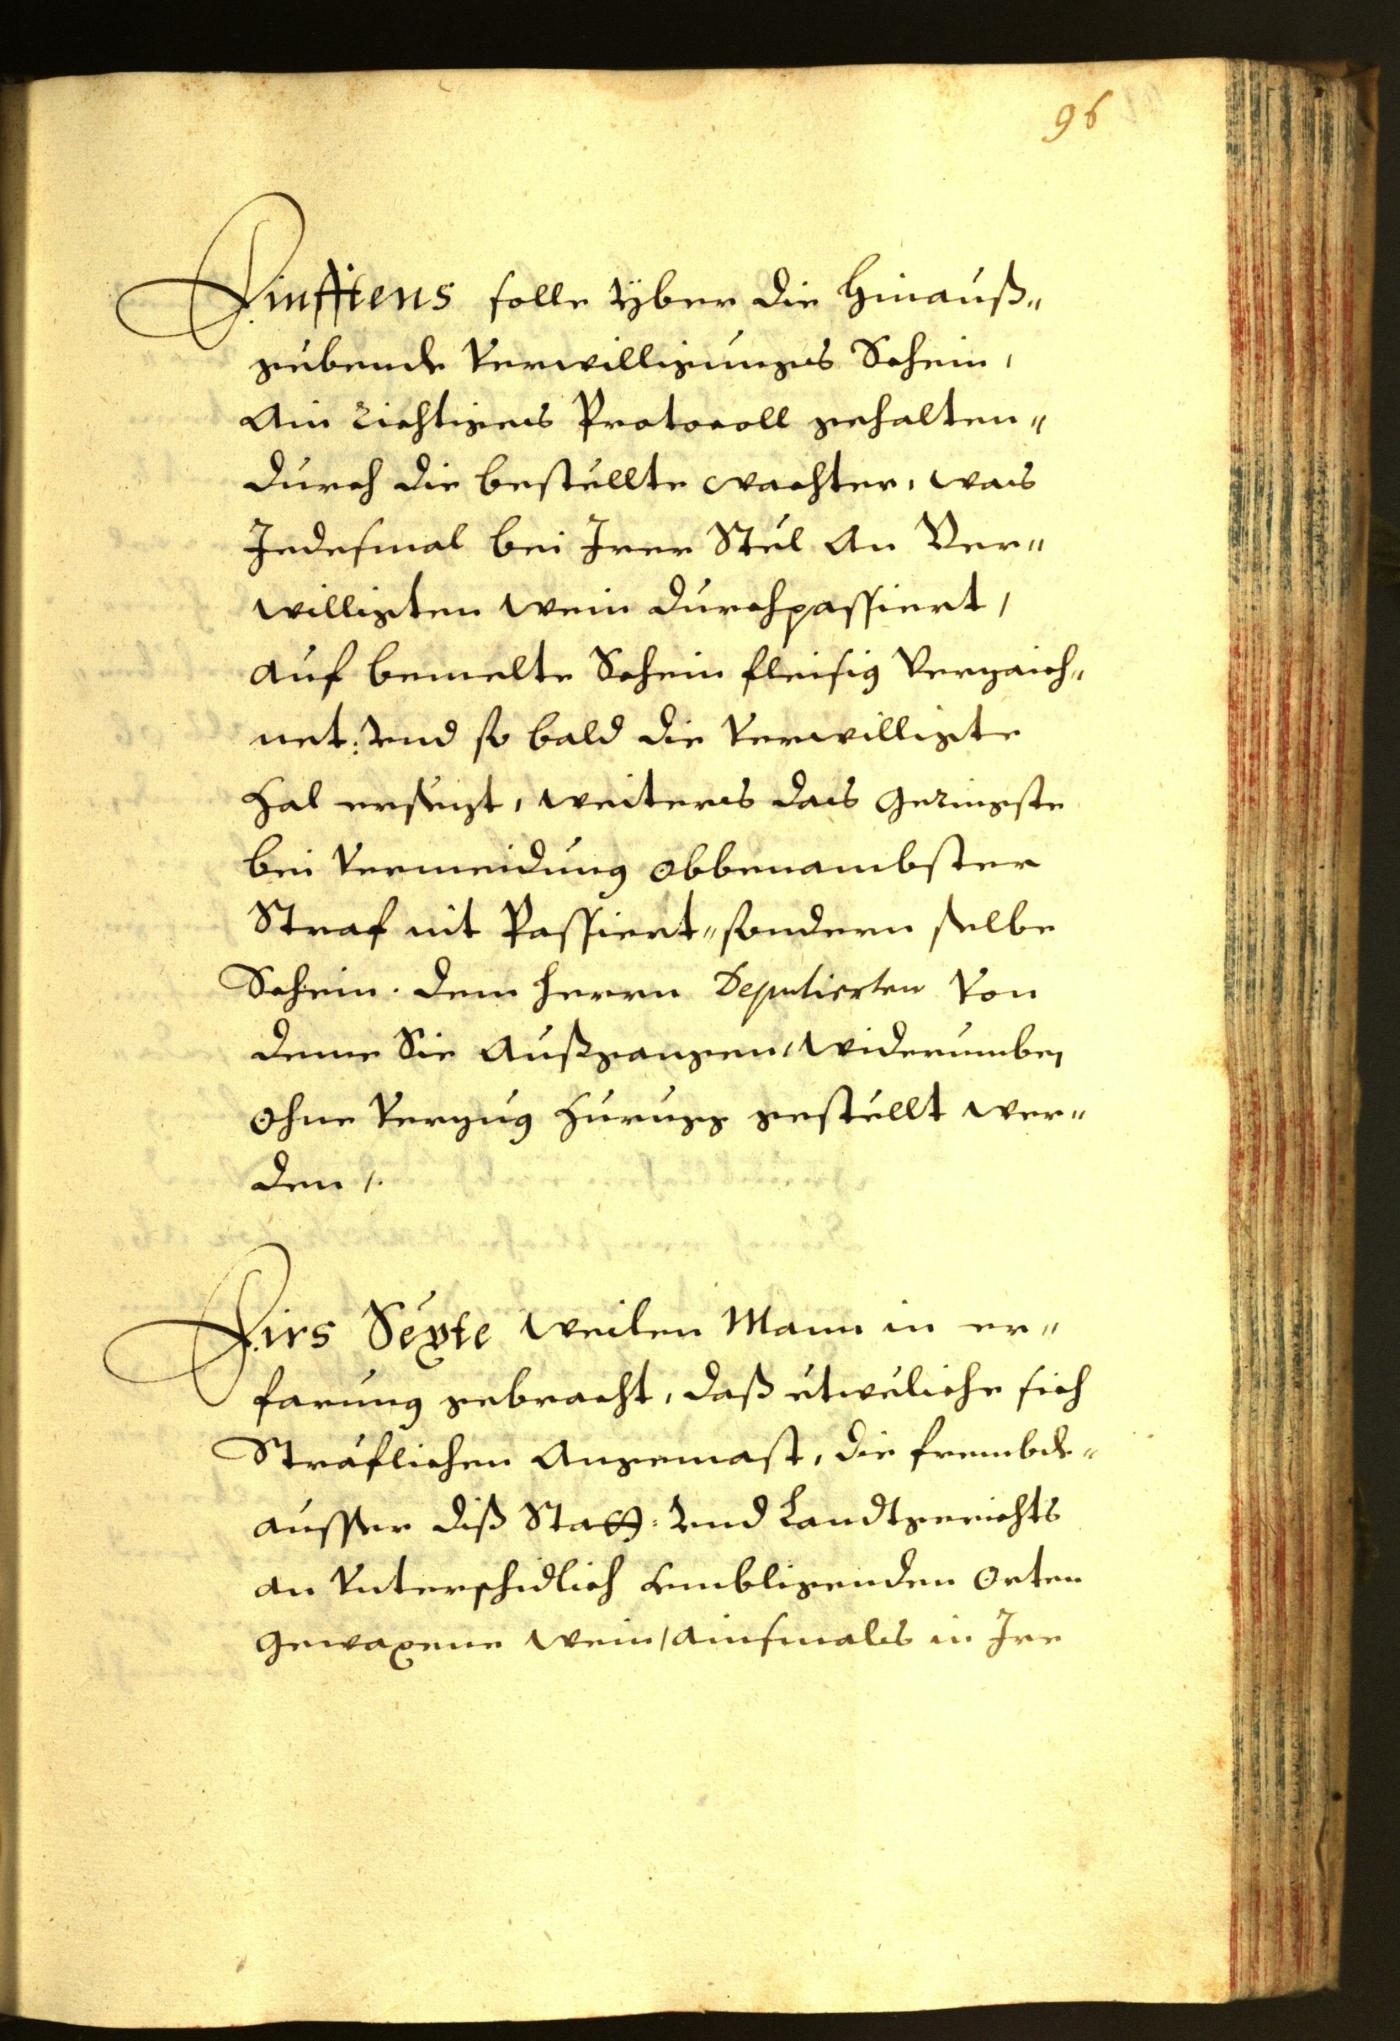 96
Finfftens solle yber die hinauß„
gebende Verwilligunges Schein,
Ain richtiges Protocoll gehalten„
durch die bestellte wachter, was
Jedesmal bei Irer Stel An Ver„
willigten wein durchpassiert,
auf bemelte Schein fleisig Verzaich„
net: Und so bald die Verwilligte
Zal ersezt, weiters das geringste
bei Vermeidung obbenambster
Straf nit Passiert„ sondern selbe
Schein. dem herrn Deputierten Von
deme Sie Außgangen, widerumben
ohne Verzug Zurugg gestellt wer„
den /.
Firs Sexte weilen Mann in er„
farung gebracht, daß etweliche sich
Sträflichen Angemast, die frembde„
ausser diß Statt: Und Landtgerichts
an Unterschidlich umbligenden orten
gewaxene wein, ainsmals in Ire